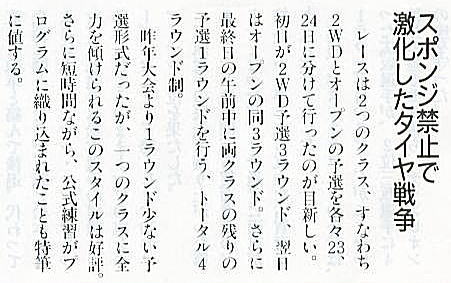 スポンジ禁止で
激化したタイヤ戦争
レースは2つのクラス、すなわち
2WDとオープンの予選を各々23、
24日に分けて行ったのが目新しい。
初日が2WD予選3ラウンド、翌日
はオープンの同3ラウンド。さらに
最終日の午前中に両クラスの残りの
予選1ラウンドを行う、トータル4
ラウンド制。
昨年大会より1ラウンド少ない予
選形式だったが、一つのクラスに全
力を傾けられるこのスタイルは好評。
さらに短時間ながら、公式練習がプ
ログラムに織り込まれたことも特筆
に値する。